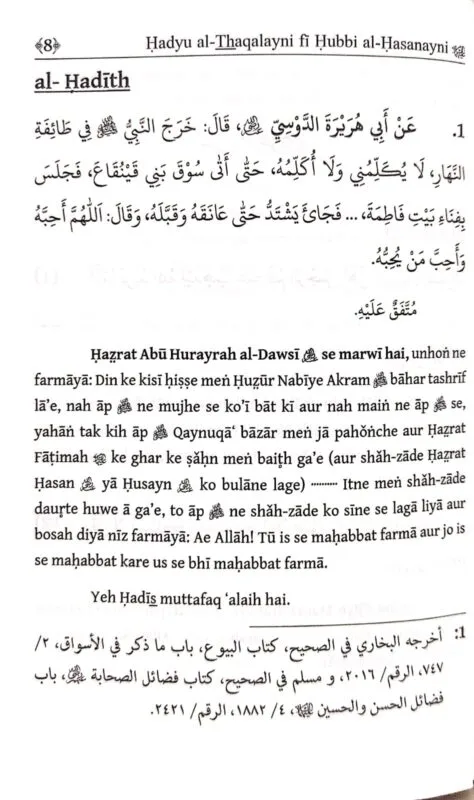 ﴾8﴿ Ḥadyu al-Thaqalayni fī Ḥubbi al-Ḥasanayni ﷺ
al- Ḥadīth
1. عَنْ أَبِي هُرَيْرَةَ الدَّوْسِيِّ رضي الله عنه، قَالَ: خَرَجَ النَّبِيُّ ﷺ فِي طَائِفَةِ
النَّهَارِ، لَا يُكَلِّمُنِي وَلَا أُكَلِّمُهُ، حَتَّى أَتَى سُوْقَ بَنِي قَيْنُقَاعَ، فَجَلَسَ
بِفِنَاءِ بَيْتِ فَاطِمَةَ، ... فَجَائَ يَشْتَدُّ حَتَّى عَانَقَهُ وَقَبَّلَهُ، وَقَالَ: اَللّٰهُمَّ أَحِبَّهُ
وَأَحِبَّ مَنْ يُحِبُّهُ.
مُتَّفَقٌ عَلَيْهِ.
Ḥaẓrat Abū Hurayrah al-Dawsī se marwī hai, unhoṅ ne
farmāyā: Din ke kisī ḥiṣṣe meṅ Ḥuẓūr Nabīye Akram ﷺ bāhar tashrīf
lā'e, nah āp ﷺ ne mujhe se ko'ī bāt kī aur nah maiṅ ne āp ﷺ se,
yahāṅ tak kih āp ﷺ Qaynuqā‘ bāzār meṅ jā pahoṅche aur Ḥaẓrat
Fāṭimah ke ghar ke ṣaḥn meṅ baiṭh ga'e (aur shāh-zāde Ḥaẓrat
Ḥasan yā Ḥusayn ko bulāne lage) ┄┄┄ Itne meṅ shăh-zāde
dauṛte huwe ā ga'e, to āp ﷺ ne shăh-zāde ko sīne se lagā liyā aur
bosah diyā nīz farmāyā: Ae Allāh! Tū is se maḥabbat farmā aur jo is
se maḥabbat kare us se bhī maḥabbat farmā.
Yeh Ḥadīs muttafaq ‘alaih hai.
1: أخرجه البخاري في الصحيح، كتاب البيوع، باب ما ذكر في الأسواق، ٢/
٧٤٧، الرقم/ ٢٠١٦، و مسلم في الصحيح، كتاب فضائل الصحابة، باب
فضائل الحسن والحسين، ٤/ ١٨٨٢، الرقم/ ٢٤٢١.